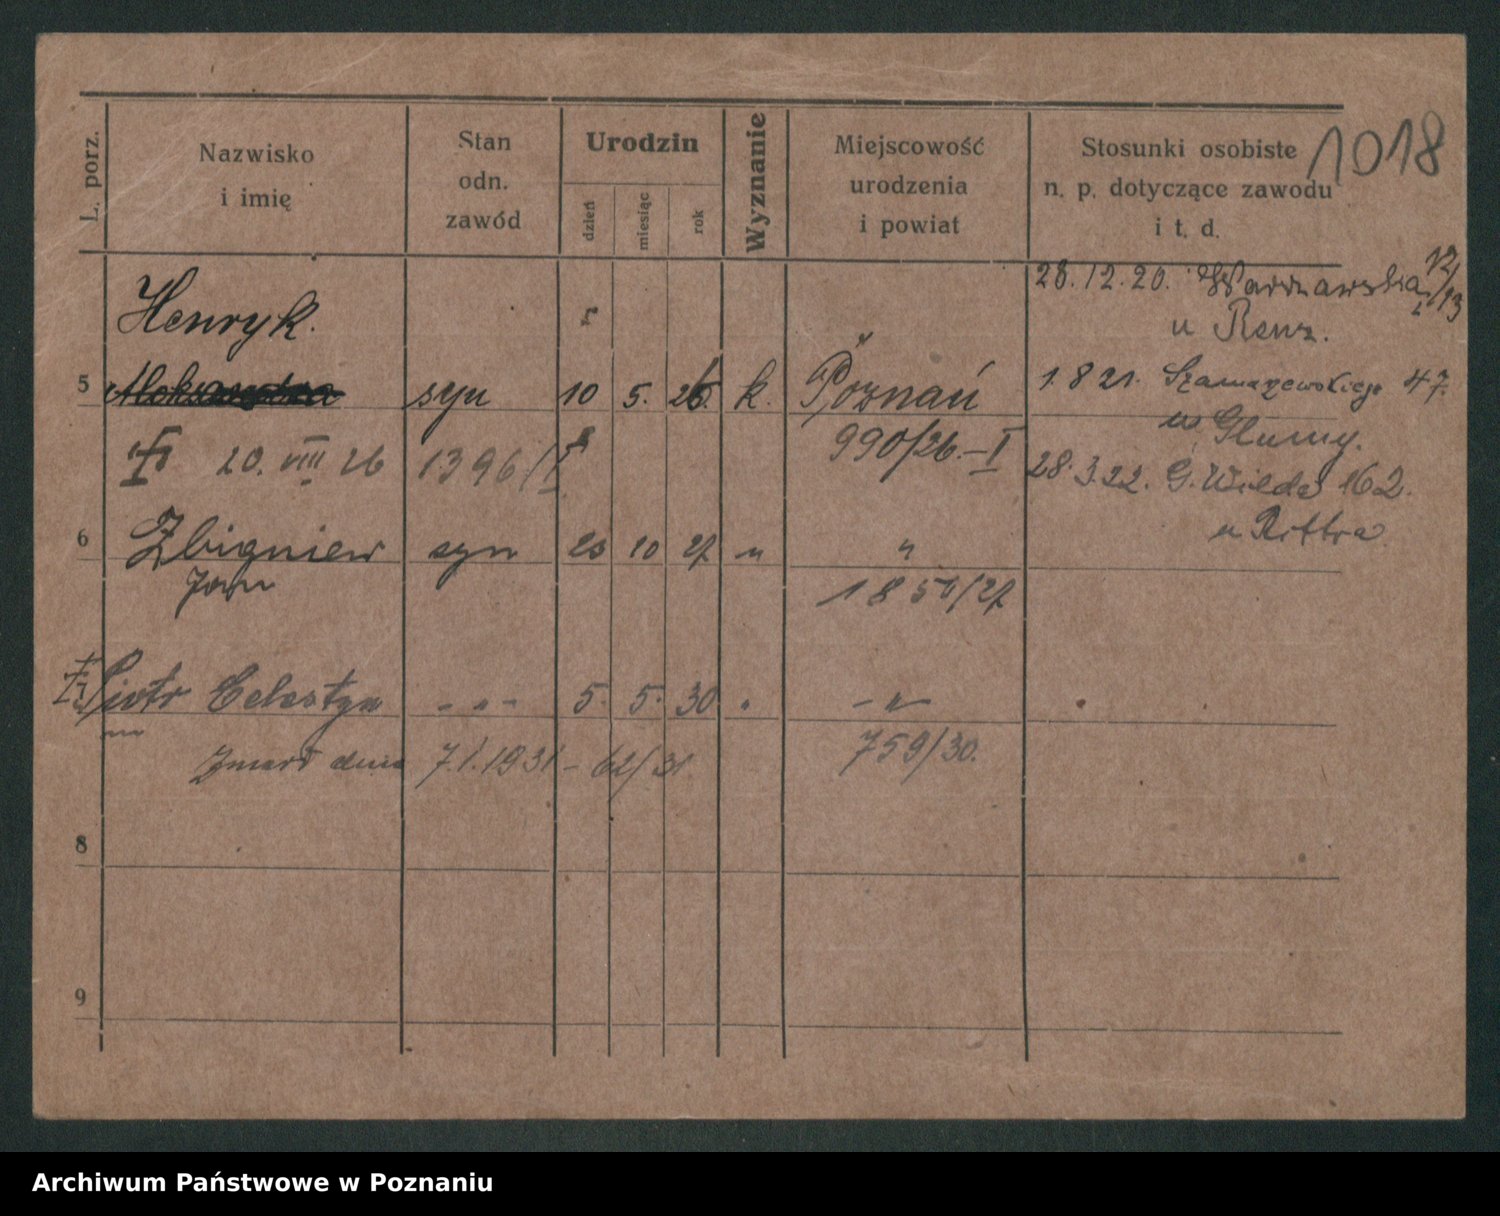 1018
L. porz.
Nazwisko
i imię
Stan
odn.
zawód
Urodzin
dzień
miesiąc
rok
Wyznanie
Miejscowość
urodzenia
i powiat
Stosunki osobiste
n. p. dotyczące zawodu
i t. d.
28.12.20. 12/13
u Renz.
Henryk.
5 syn 10 5. 26. k. Poznań
1.8 21. Szamarzewskiego 47.
u
20. VIII 26 1396/I 990/26.-I
28.3.22. G. Wilda 162.
u Rittra
6 Zbigniew syn 23 10 27 " "
Jan 1850/27
Piotr Celestyn - " - 5. 5. 30 " - " -
Zmarł dnia 7.1.1931 - 62/31 759/30.
8
9
Archiwum Państwowe w Poznaniu